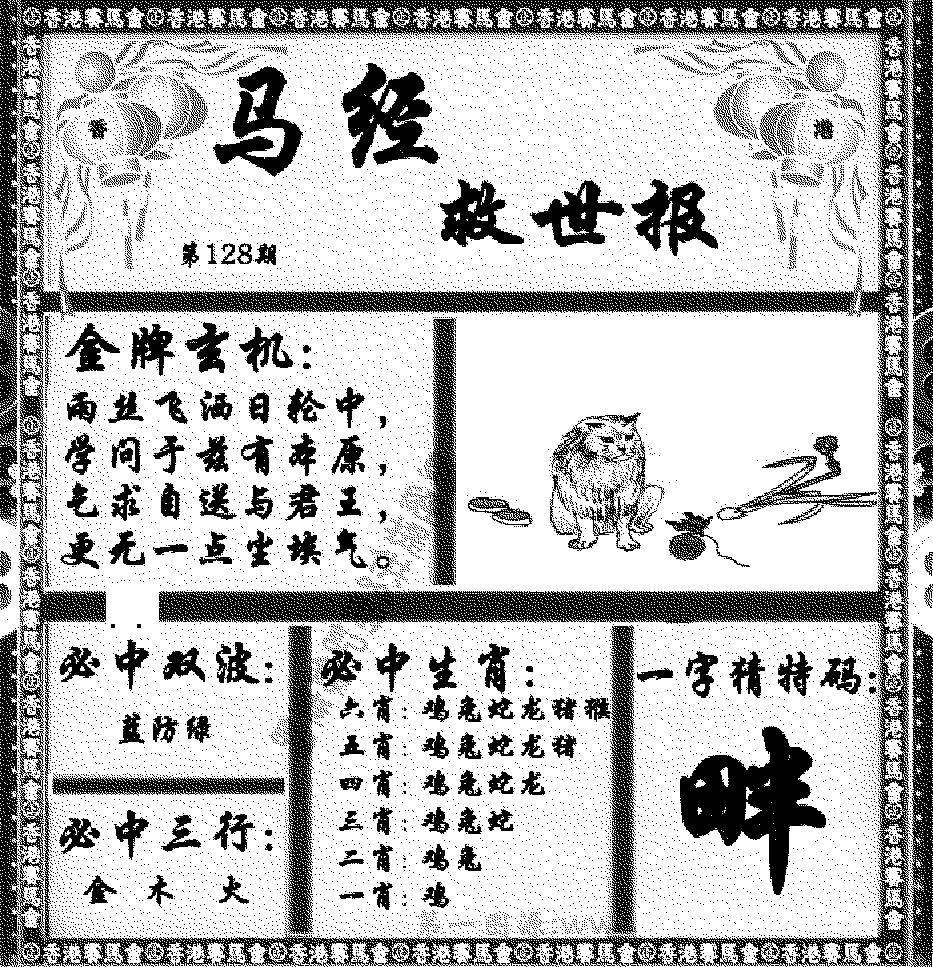 香港賽馬會香港賽馬會香港賽馬會香港賽馬會香港賽馬會香港賽馬會香港賽馬會
香
港
马经
救世报
第128期
金牌玄机：
雨丝飞洒日轮中，
学问于兹有本原，
乞求自送与君王，
更无一点尘埃气。
必中双波：
蓝防绿
必中三行：
金木 火
必中生肖：
六肖：鸡兔蛇龙猪猴
五肖：鸡兔蛇龙猪
四肖：鸡兔蛇龙
三肖：鸡兔蛇
二肖：鸡兔
一肖：鸡
一字猜特码：
畔
香港賽馬會香港賽馬會香港賽馬會香港賽馬會香港賽馬會香港賽馬會香港賽馬會